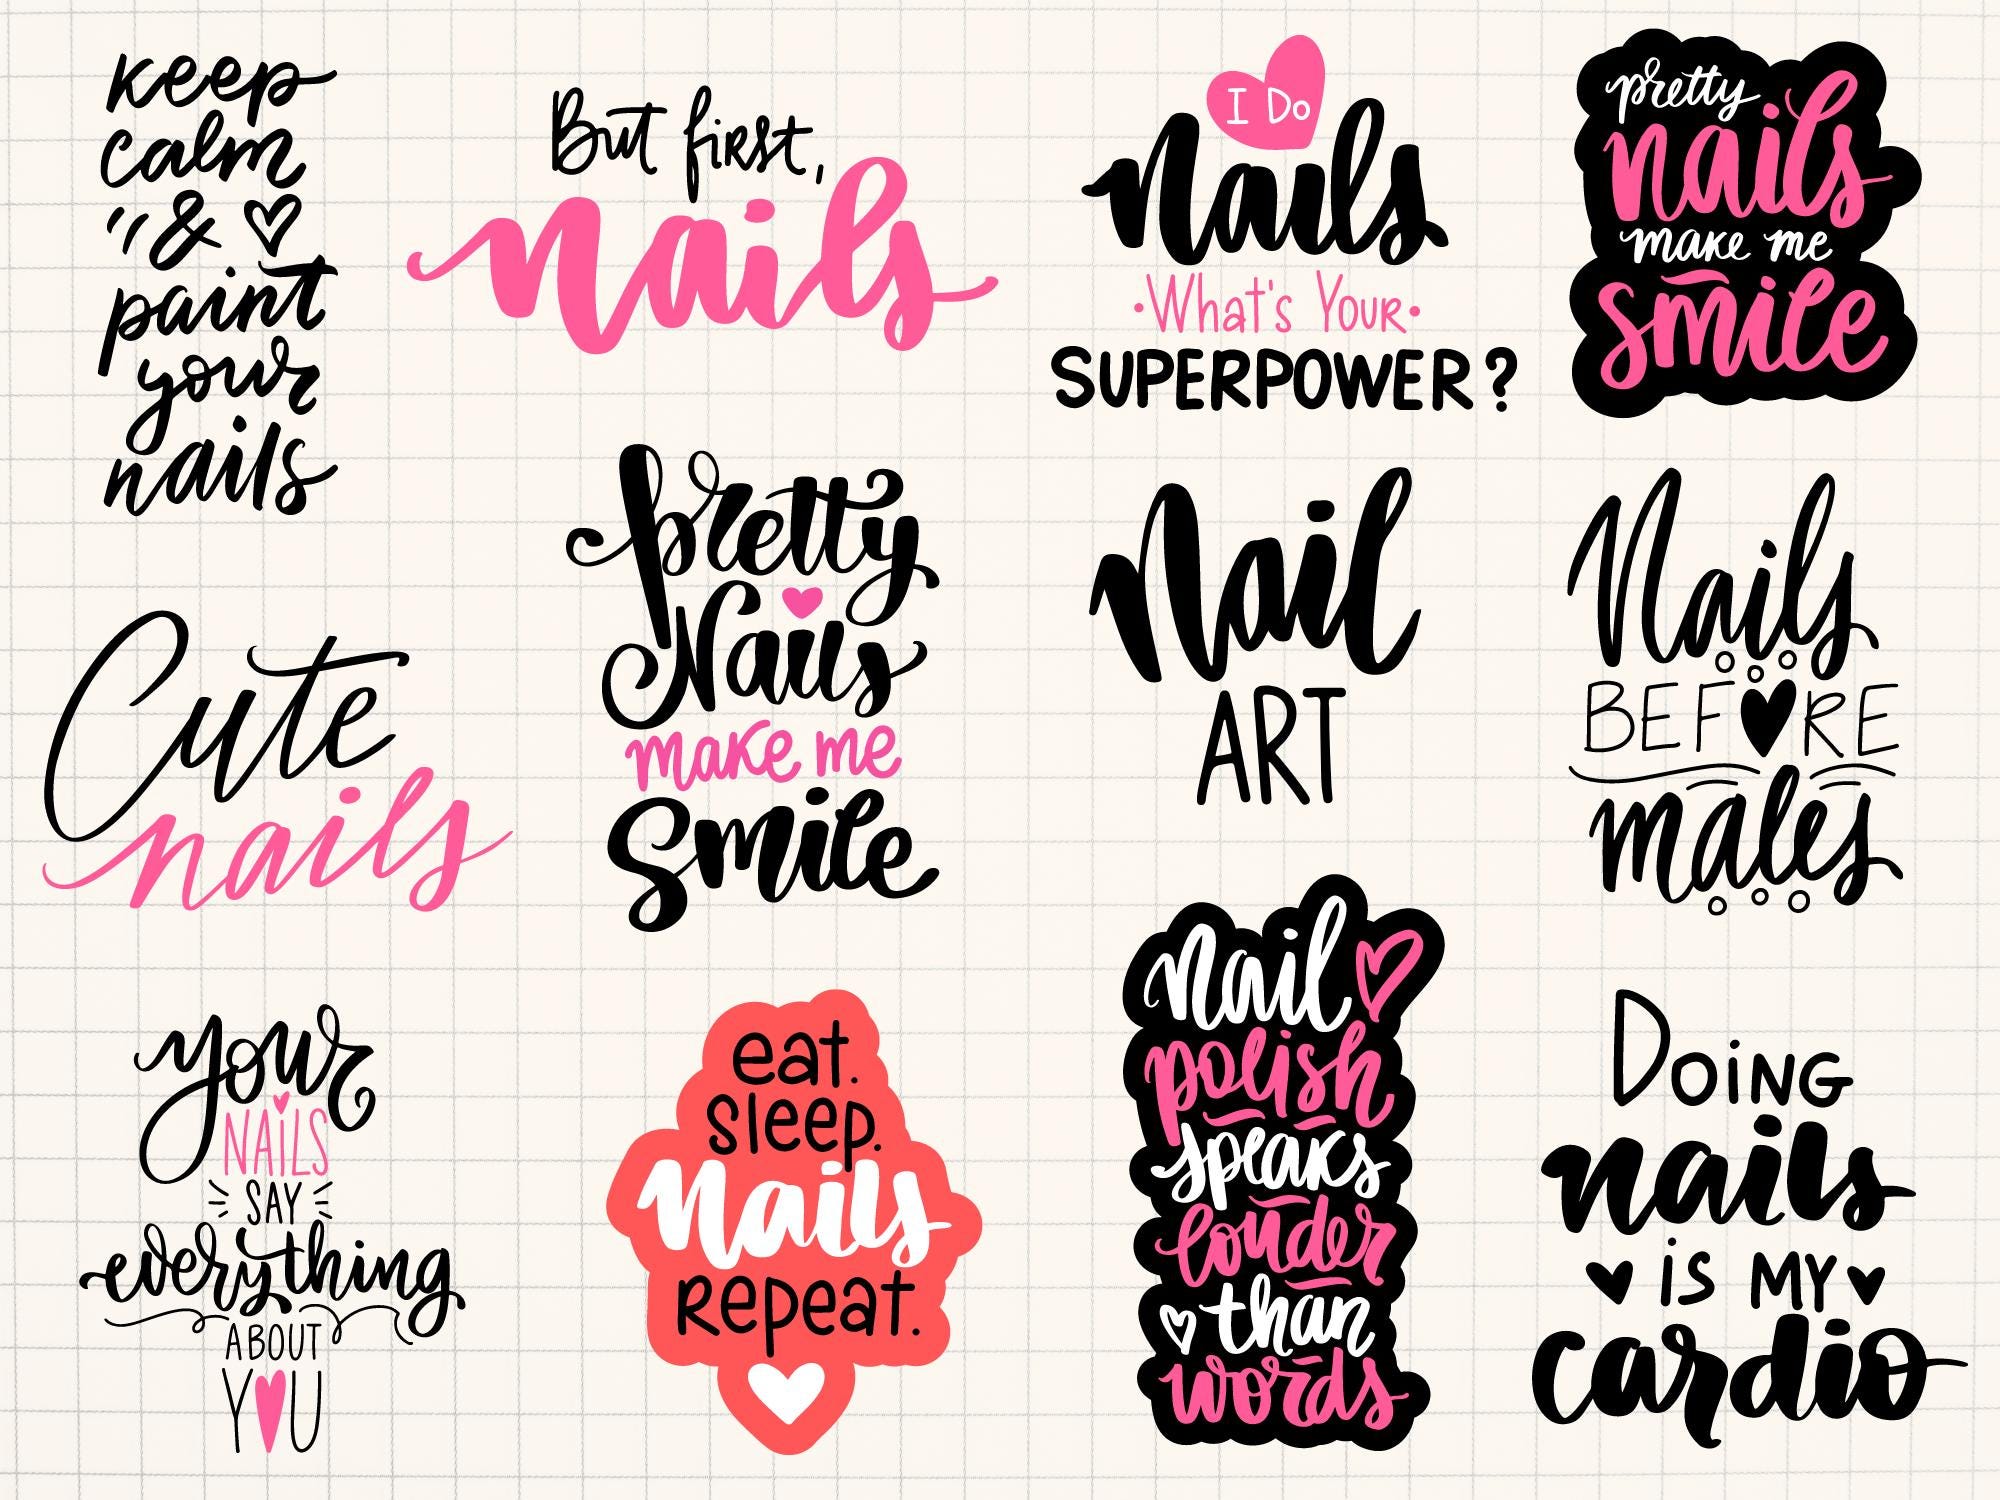 keep
calm
&
paint
your
nails
But first,
nails
I Do
Nails
What's Your
SUPERPOWER?
pretty
nails
make me
smile
Cute
nails
Pretty
Nails
make me
Smile
Nail
ART
Nails
BEFRE
males
your
NAiLS
SAY
everything
ABOUT
YU
eat.
sleep.
Nails
Repeat.
nail
polish
speaks
louder
than
words
DOiNG
nails
iS MY
cardio